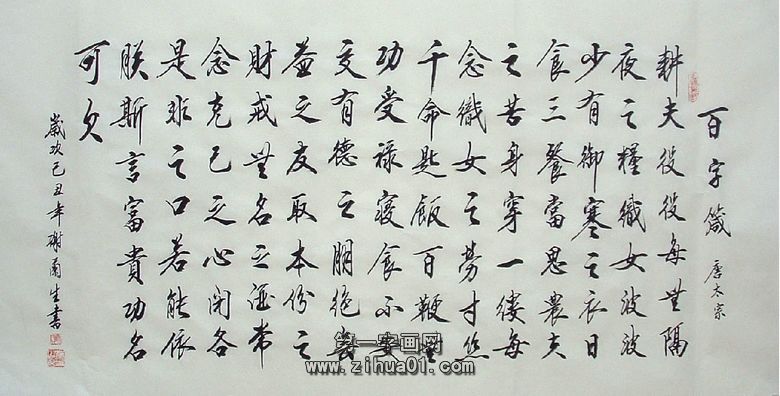 百字箴 唐太宗
耕夫役役每無隔
夜之糧織女波波
少有御寒之衣日
食三餐當思農夫
之苦身穿一縷每
念織女之勞寸丝
千命匙飯百鞭無
功受禄寝食不安
交有德之朋绝無
益之友取本份之
財戒無名之酒常
念克己之心闭各
是非之口若能依
朕斯言富貴功名
可久
歲次己丑年谢生書
第一字画网
www.zihua01.com